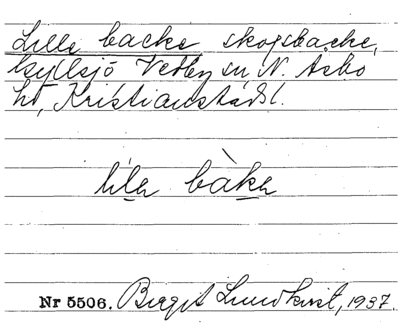 Lilla backe skogsbacke,
Kyllsjö Vedby sn N. Åsbo
hd, Kristianstads l.
lila bàka
Nr 5506. Birgit Lundkvist, 1937.